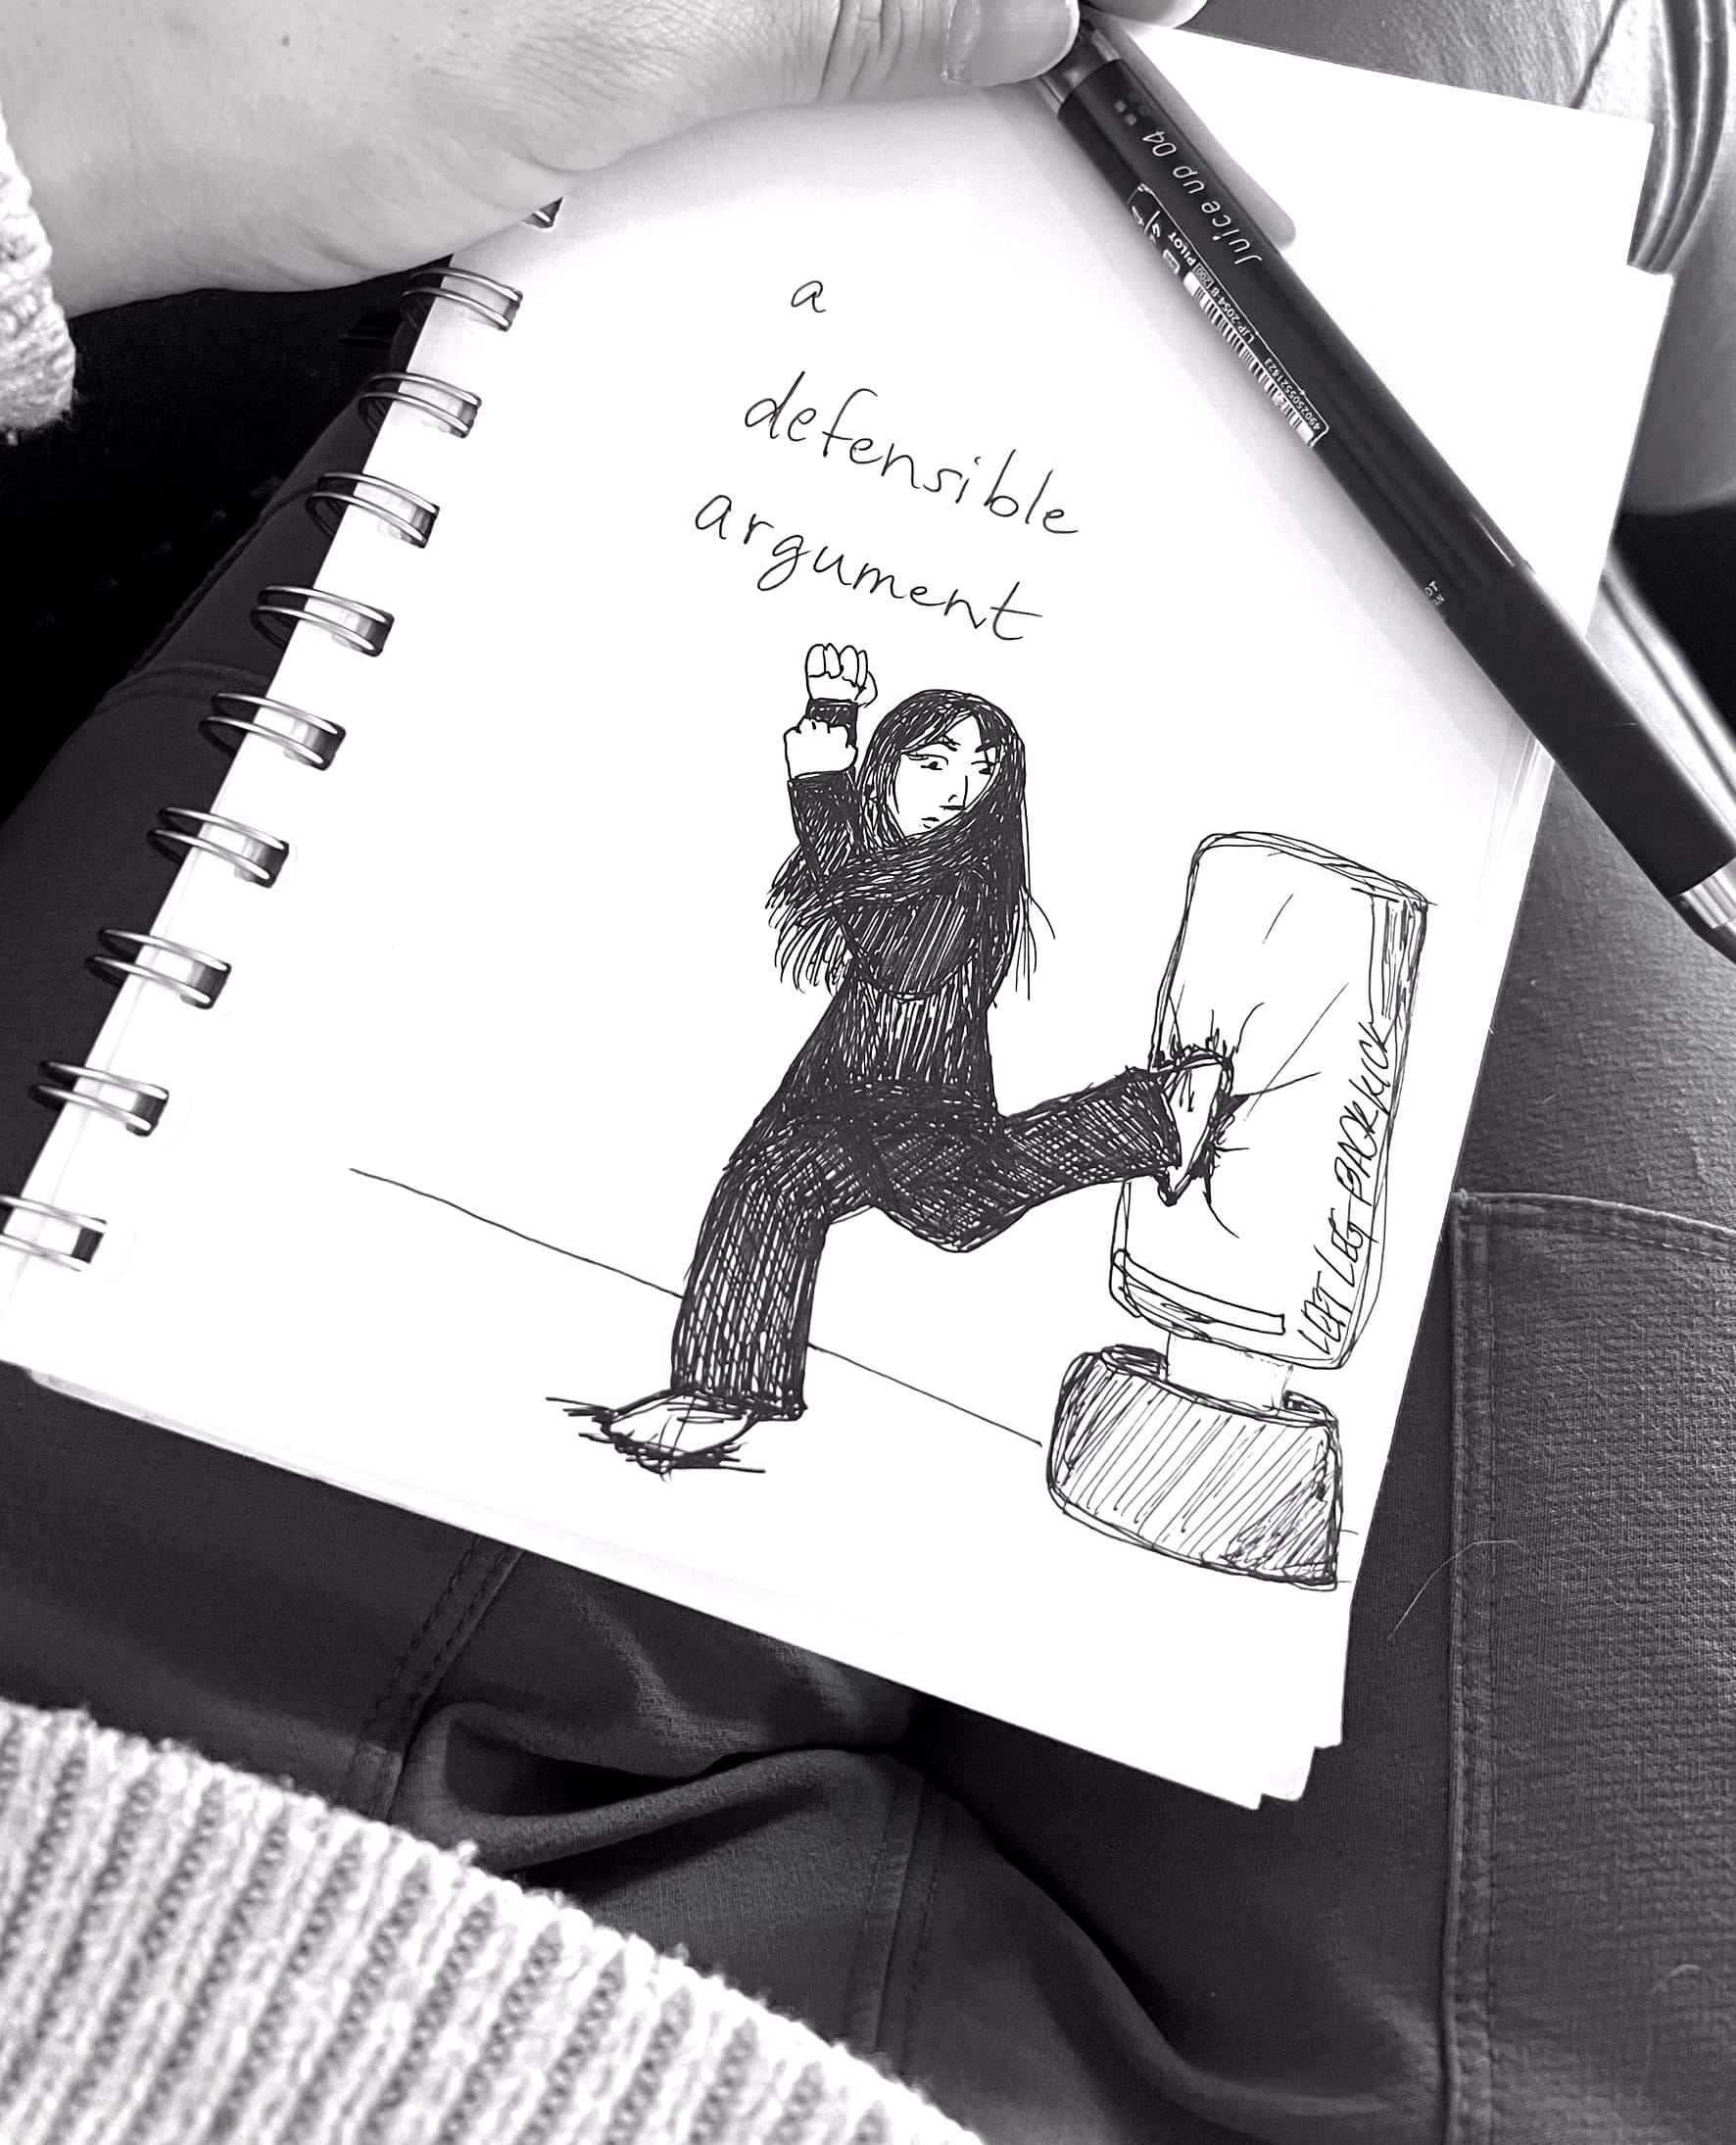 a
defensible
argument
LEFT LEG BACK KICK
Juice up 04
PILOT
LJP-20S4-B
4902505521423